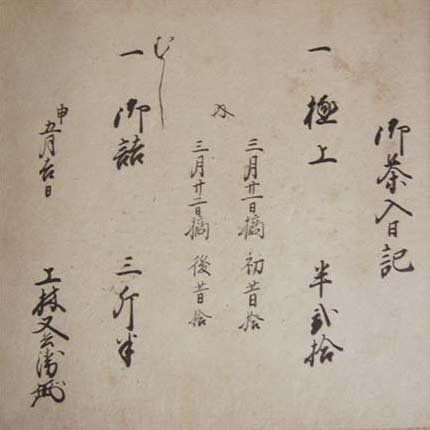 御茶入日記
一 極上 半弐拾
三月廿一日摘 初昔拾
内
三月廿二日摘 後昔拾
むし
一 御詰 三斤半
申 五月吉日 上林又兵衛